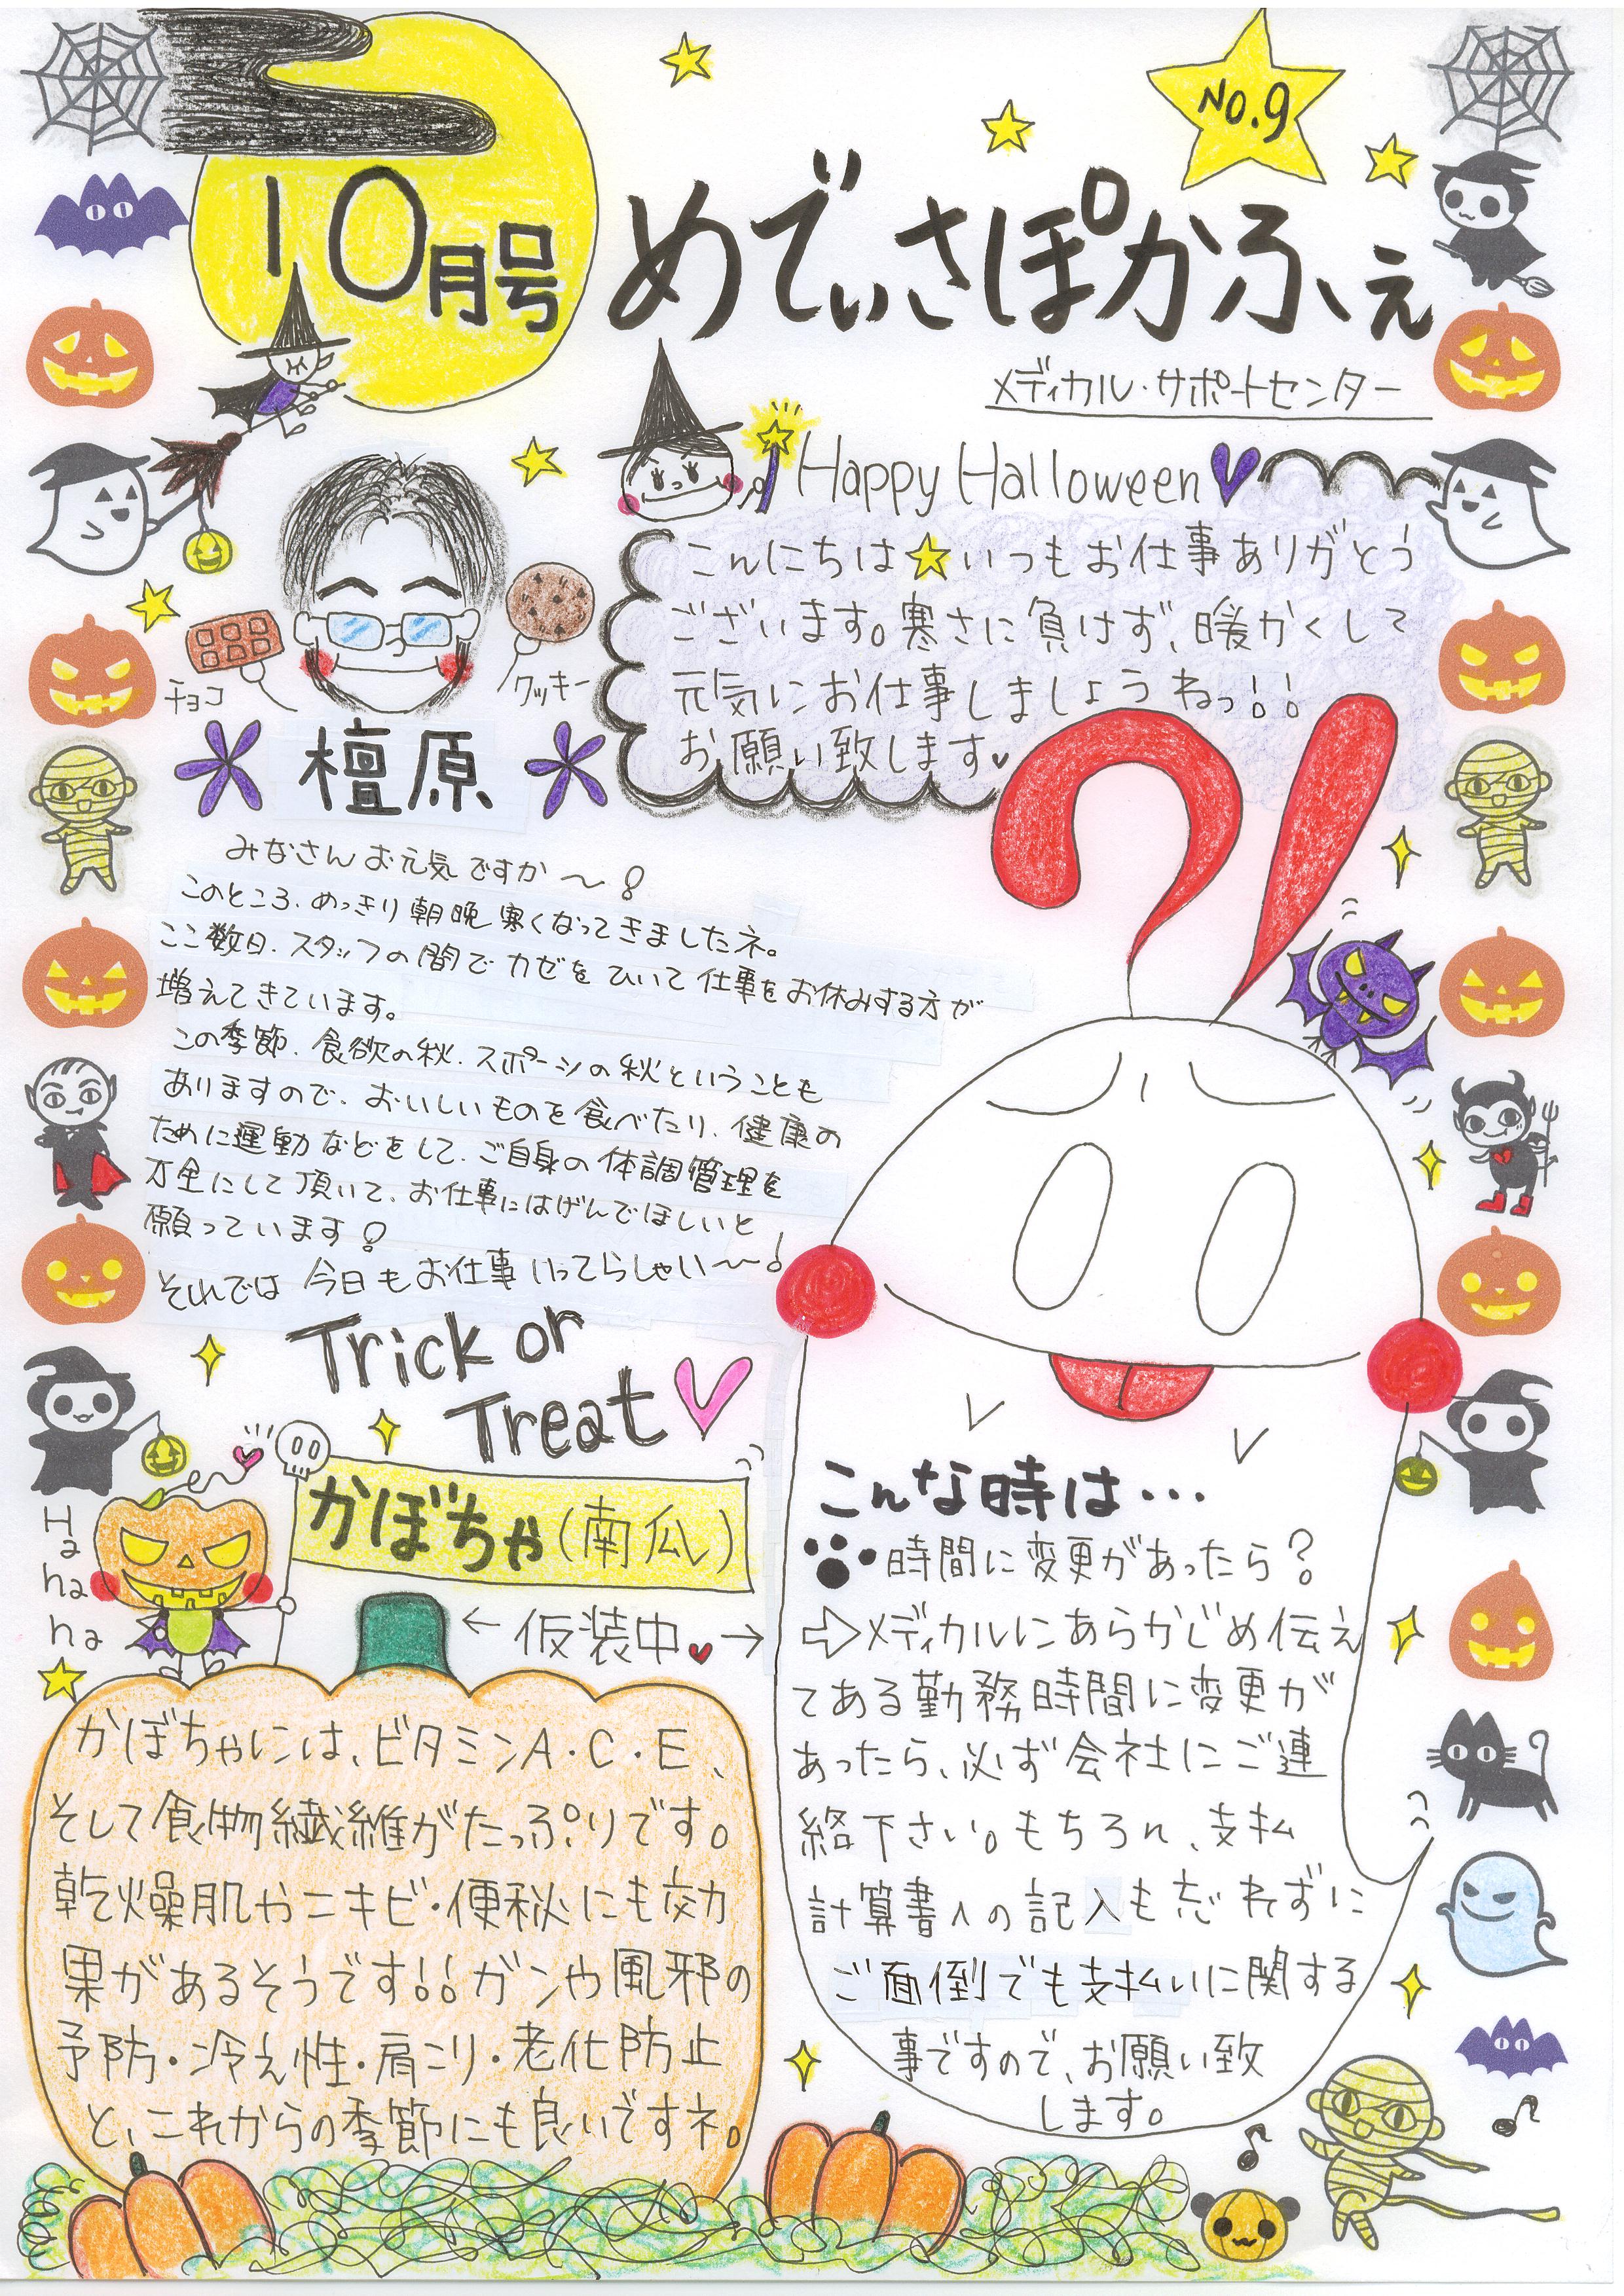 No.9
10月号
めでぃさぽかふぇ
メディカル・サポートセンター
Happy Halloween
こんにちは☆いつもお仕事ありがとう
ございます。寒さに負けず、暖かくして
元気にお仕事しましょうねっ!!
お願い致します♥
チョコ
クッキー
檀原
みなさんお元気ですか〜!
このところ、めっきり朝晩寒くなってきましたネ。
ここ数日、スタッフの間でカゼをひいて仕事をお休みする方が
増えてきています。
この季節、食欲の秋、スポーツの秋ということも
ありますので、おいしいものを食べたり、健康の
ために運動などをして、ご自身の体調管理を
万全にして頂いて、お仕事にはげんでほしいと
願っています!
それでは 今日もお仕事いってらしゃい〜!
Trick or
Treat
Ha
ha
ha
かぼちゃ(南瓜)
←仮装中♥→
かぼちゃには、ビタミンA・C・E、
そして食物繊維がたっぷりです。
乾燥肌やニキビ・便秘にも効
果があるそうです!!ガンや風邪の
予防・冷え性・肩こり・老化防止
と、これからの季節にも良いですネ。
こんな時は・・・
時間に変更があったら?
⇨メディカルにあらかじめ伝え
てある勤務時間に変更が
あったら、必ず会社にご連
絡下さい。もちろん、支払
計算書への記入も忘れずに
ご面倒でも支払いに関する
事ですので、お願い致
します。